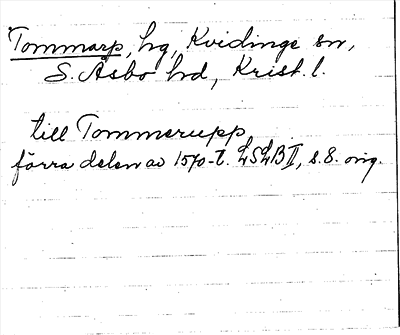 Tommarp, hg, Kvidinge sn,
S. Åsbo hd, Krist. l.
till Tommerupp
förra delen av 1570-t. LSLB II, s. 8. orig.